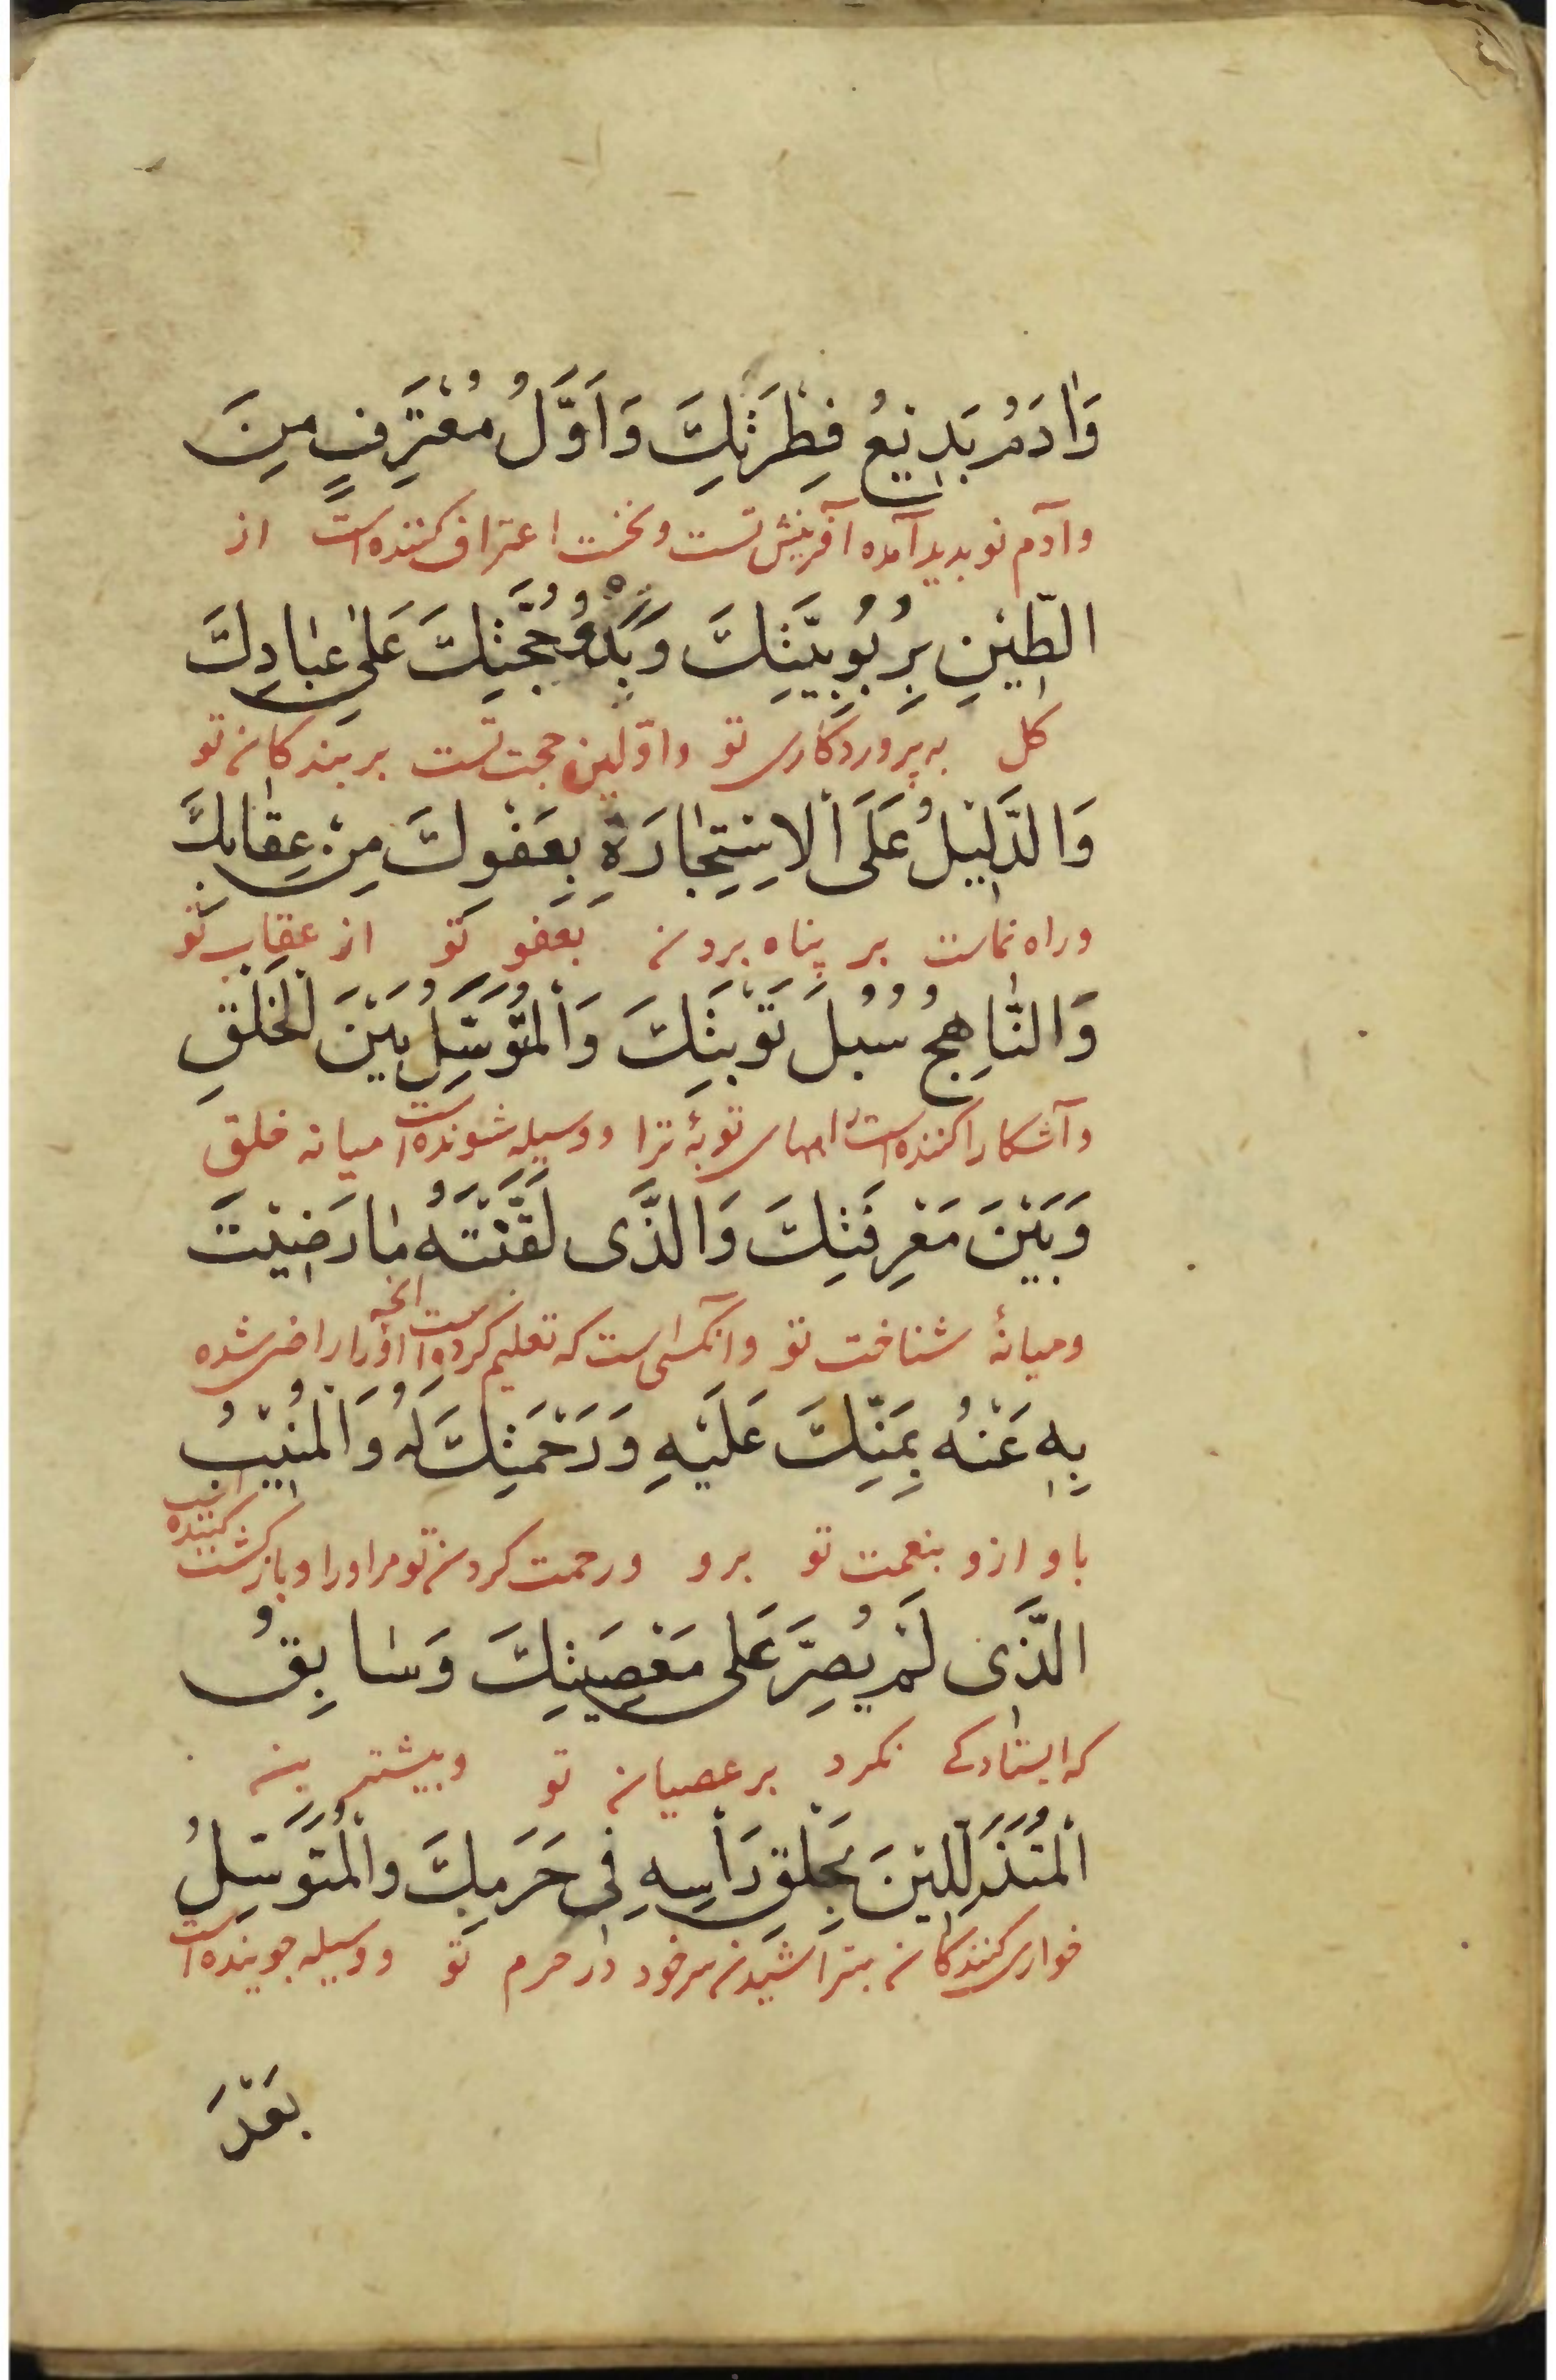 وَاٰدَمُ بَدِیْعُ فِطْرَتِكَ وَاَوَّلُ مُعْتَرِفٍ مِنَ
وآدم نو بدید آمده آفرینش تست و نخست اعتراف کننده است از
الطّٖیْنِ بِرُبُوبِیَّتِكَ وَبَدْءُ حُجَّتِكَ عَلٰى عِبٰادِكَ
کل به پروردکاری تو و اوّلین حجت تست بر بندکان تو
وَالدَّلٖیْلُ عَلَى الْاِسْتِجٰارَةِ بِعَفْوِكَ مِنْ عِقٰابِكَ
و راه نماست بر پناه بردن بعفو تو از عقاب تو
وَالنّٰاهِجُ سُبُلَ تَوْبَتِكَ وَالْمُتَوَسِّلُ بَیْنَ الْخَلْقِ
و آشکارا کننده است راههای توبهٔ ترا و وسیله شونده است میان خلق
وَبَیْنَ مَعْرِفَتِكَ وَالَّذَى لَقَّنْتَهُ مٰا رَضٖیْتَ
و میانهٔ شناخت تو و آنکسی است که تعلیم کرده او را انچه راضی شده
بِهٖ عَنْهُ بِمَنِّكَ عَلَیْهِ وَرَحْمَتِكَ لَهُ وَالْمُنٖیْبُ
با و ازو بنعمت تو برو و رحمت کردن تو مر او را و بازکشت کننده است
الَّذٖى لَمْ یُصِرَّ عَلى مَعْصِیَتِكَ وَسٰابِقُ
که ایستادکے نکرد بر عصیان تو و پیشتر ین
الْمُتَذَلِّلٖیْنَ بِحَلْقِ رَأْسِهِ فٖى حَرَمِكَ وَالْمُتَوَسِّلُ
خواری کنندکان بتراشیدن سر خود در حرم تو و وسیله جوینده است
بَعْدَ